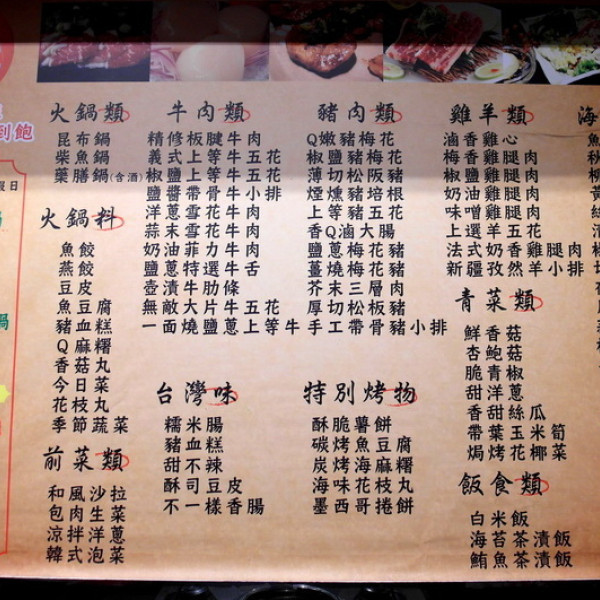 火鍋類
昆布鍋
柴魚鍋
藥膳鍋(含酒)
火鍋料
魚餃
燕餃
豆皮
魚豆腐
豬血糕
Q麻糬
香菇丸
今日菜
花枝丸
季節蔬菜
前菜類
和風沙拉
包肉生菜
涼拌洋蔥
韓式泡菜
牛肉類
精修板腱牛肉
義式上等牛五花
椒鹽上等牛五花
鹽醬帶骨牛小排
洋蔥雪花牛肉
蒜末雪花牛肉
奶油菲力牛肉
鹽蔥特選牛舌
壺漬牛肋條
無敵大片牛五花
一面燒鹽蔥上等牛
台灣味
糯米腸
豬血糕
甜不辣
酥司豆皮
不一樣香腸
豬肉類
Q嫩豬梅花
椒鹽豬梅花
薄切松阪豬
煙燻豬培根
上等豬五花
香Q滷大腸
鹽蔥梅花豬
薑燒梅花豬
芥末三層肉
厚切松板豬
手工帶骨豬小排
特別烤物
酥脆薯餅
碳烤魚豆腐
炭烤海麻糬
海味花枝丸
墨西哥捲餅
雞羊類
滷香雞心
梅香雞腿肉
椒鹽雞腿肉
奶油雞腿肉
味噌雞腿肉
上選羊五花
法式奶香雞腿肉
新疆孜然羊小排
青菜類
鮮香菇
杏鮑菇
脆青椒
甜洋蔥
香甜絲瓜
帶葉玉米筍
焗烤花椰菜
飯食類
白米飯
海苔茶漬飯
鮪魚茶漬飯
海
到飽
日
鍋